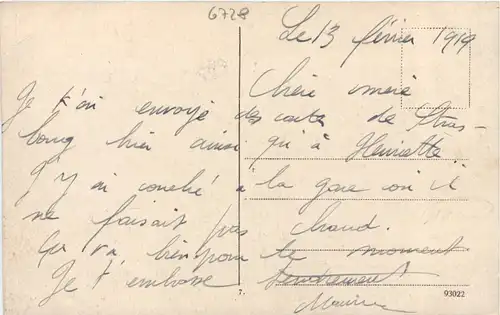 6728
Le 13 février 1919
Chère mère
Je t'ai envoyé des cartes de Stras-
bourg hier ainsi qu'à Henriette.
J'y ai couché à la gare où il
ne faisait pas chaud.
Ça va bien pour le moment
Je t'embrasse tendrement
Maurice
7.
93022